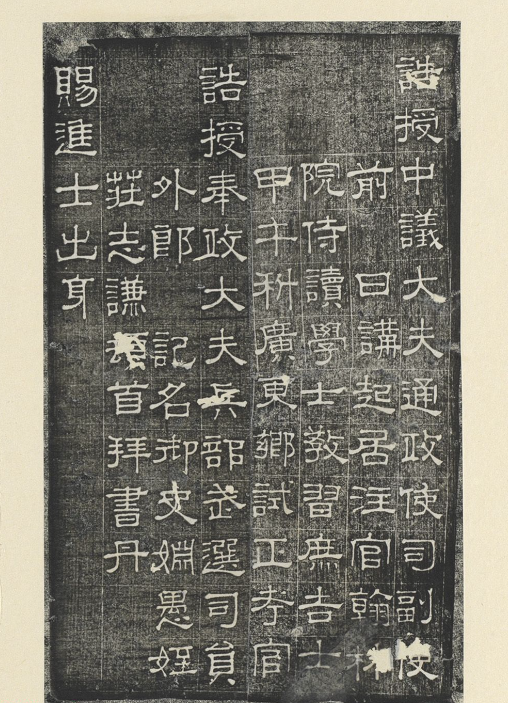 誥授中議大夫通政使司副使
前 日講起居注官翰林
院侍讀學士教習庶吉士
甲午科廣東鄉試正考官
誥授奉政大夫兵部武選司員
外郎 記名御史姻愚姪
莊志謙頓首拜書丹
賜進士出身